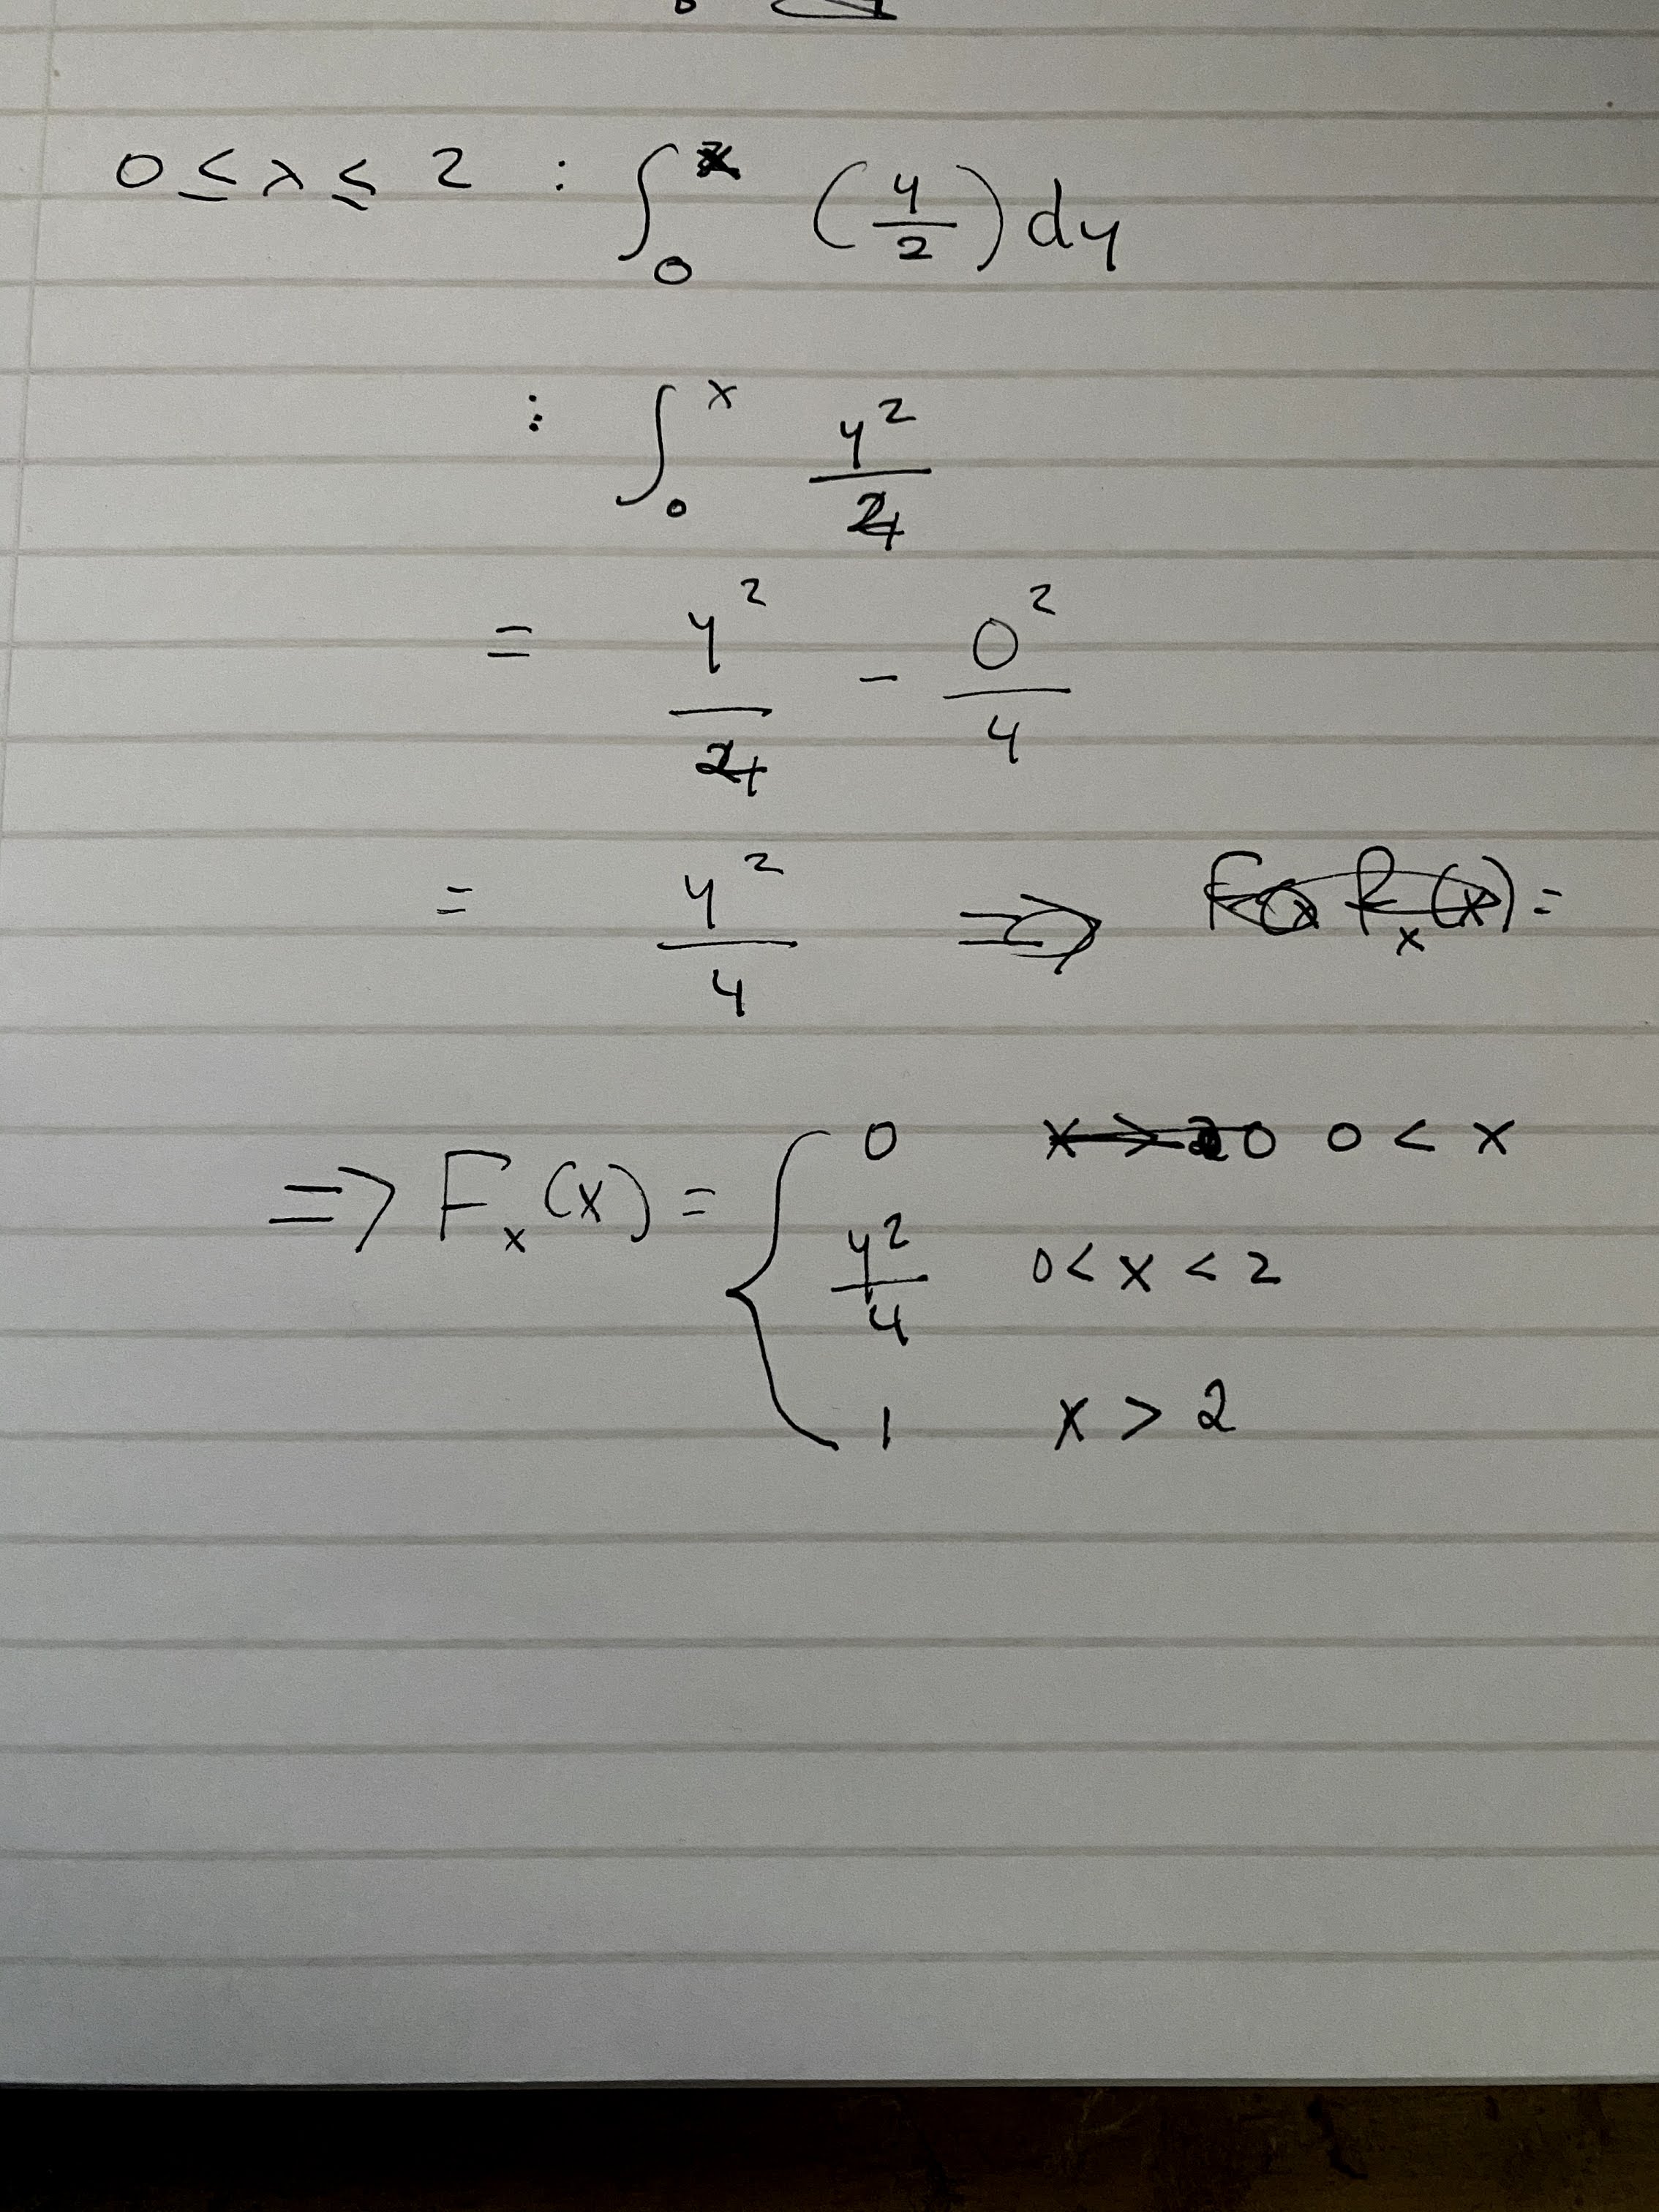 0 ≤ x ≤ 2 : ∫₀ˣ (y/2) dy
: ∫₀ˣ y²/4
= y²/4 - 0²/4
= y²/4 ⇒
⇒ Fₓ(x) = { 0 0 < x
y²/4 0 < x < 2
1 x > 2